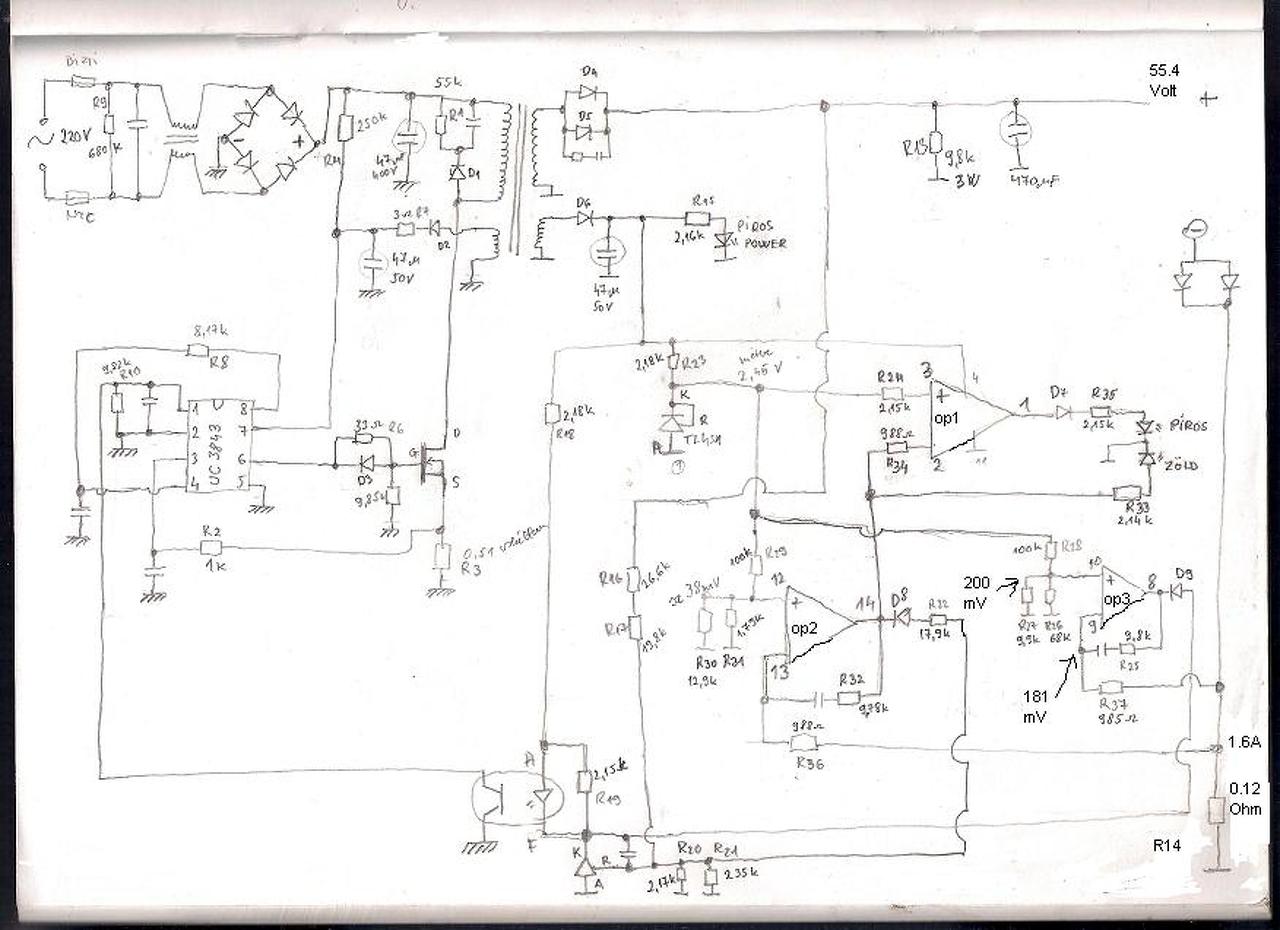 220V
R9
680 K
NTC
250k
R11
47µF
400V
55k
R1
D1
3Ω R7
D2
47µ
50V
D4
D5
D6
47µ
50V
R15
2,16k
PIROS
POWER
55.4
Volt
+
R13
9,8k
3W
470µF
−
8,17k
R8
9,82k
R10
1
2
3
4
8
7
6
5
UC3843
33Ω R6
D3
9,85k
G
D
S
R2
1k
R3
2,18k
R18
2,18k
R23
K
R
A
TL431
mérve
2,45 V
R24
2,15k
988Ω
R34
3
2
4
11
1
+
op1
D7
R35
2,15k
PIROS
ZÖLD
R33
2,14k
R16
26,6k
R17
19,8k
100k
R29
38mV
R30
12,9k
1,79k
R31
12
13
14
+
op2
D8
R22
17,9k
R32
9,78k
988Ω
R36
100k
R28
200
mV
R27
9,9k
R26
68k
10
9
8
+
op3
D9
9,8k
R25
R37
985Ω
181
mV
1.6A
0.12
Ohm
R14
A
K
2,15k
R19
K
R
A
R20
2,17k
R21
235k